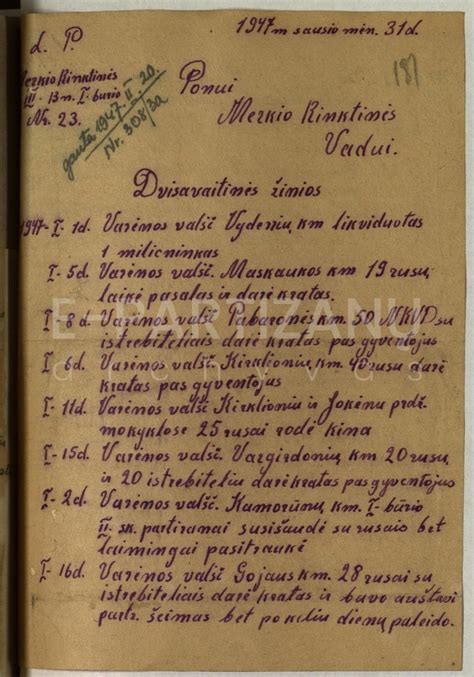 1947 m sausio mėn. 31 d.
d. P.
181
Merkio Rinktinės
III-Bn. I-būrio
Nr. 23.
gauta 1947-II-20.
Nr. 308/3a
Ponui
Merkio Rinktinės
Vadui.
Dvisavaitinės žinios
1947-I-1d. Varėnos valšč Vydenių km likviduotas
1 milicninkas
I-5d. Varėnos valšč. Maskaukos km 19 rusų,
laikė pasalas ir darė kratas.
I-8d. Varėnos valšč Pabaronės km. 50 NKVD su
istrebiteliais darė kratas pas gyventojus
I-6d. Varėnos valšč. Kirklionių km. 40 rusu darė
kratas pas gyventojus
I-11d. Varėnos valšč Kirklioniu ir Jokėnu prdž.
mokyklose 25 rusai rodė kina
I-15d. Varėnos valšč. Vargirdonių km 20 rusų
ir 20 istrebiteliu darė kratas pas gyventojus
I-2d. Varėnos valšč. Kamorūnų km. I-būrio
II sk. partizanai susišaudė su rusais bet
laimingai pasitraukė
I-16d. Varėnos valšč Gojaus km. 28 rusai su
istrebiteliais darė kratas ir buvo areštavi
partz. šeimas bet po keliu dienų paleido.
E-PARTIZANŲ